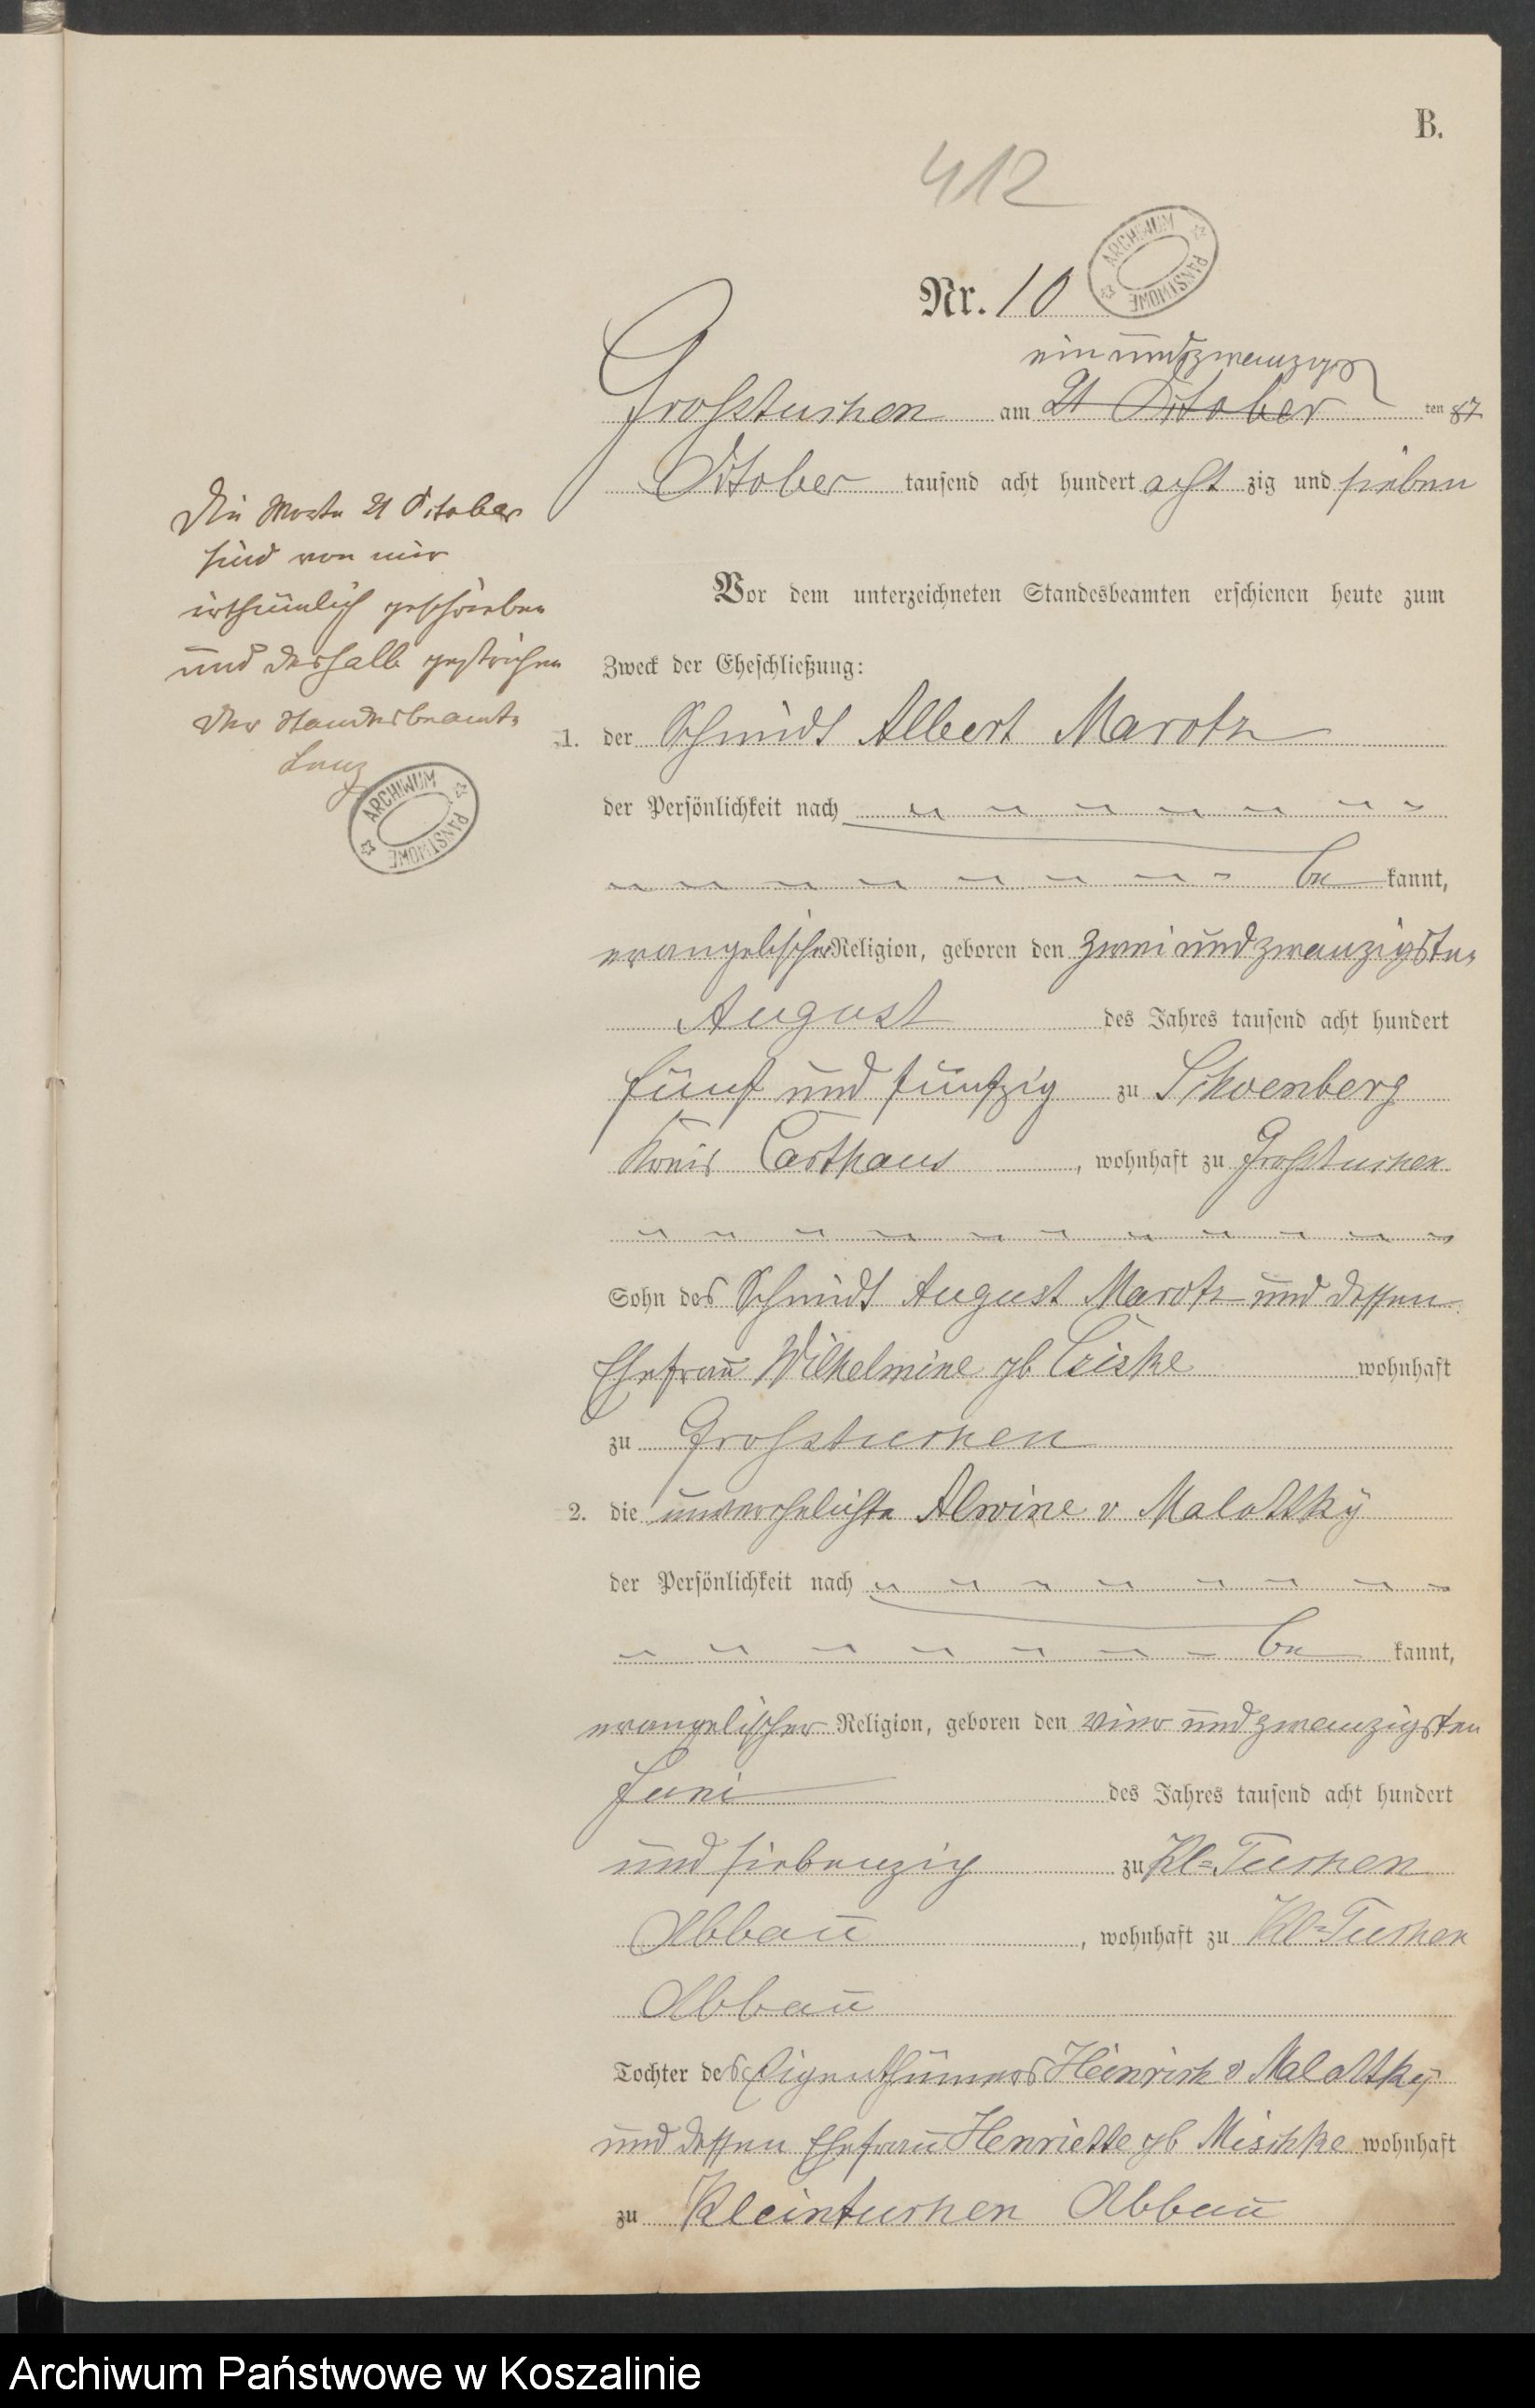 B.
412
Nr. 10
ARCHIWUM PAŃSTWOWE
ein und zwanzigs
Großtuchen am 21 October ten 87
October tausend acht hundert acht zig und sieben
Die Worte 21 October
sind von mir
irthümlich geschrieben
und deshalb gestrichen
Der Standesbeamte
Lenz
ARCHIWUM PAŃSTWOWE
Vor dem unterzeichneten Standesbeamten erschienen heute zum
Zweck der Eheschließung:
1. der Schmidt Albert Marotz
der Persönlichkeit nach
be kannt,
evangelischer Religion, geboren den zwei und zwanzigsten
August des Jahres tausend acht hundert
fünf und fünfzig zu Schoenberg
Kreis Carthaus, wohnhaft zu Großtuchen
Sohn des Schmidt August Marotz und dessen
Ehefrau Wilhelmine gb Cziske wohnhaft
zu Großtuchen
2. die unverehelichte Alwine v Malottky
der Persönlichkeit nach
be kannt,
evangelischer Religion, geboren den vier und zwanzigsten
Juni des Jahres tausend acht hundert
und siebenzig zu Kl=Tuchen
Abbau, wohnhaft zu Kl=Tuchen
Abbau
Tochter des Eigenthümers Heinrich v Malottky
und dessen Ehefrau Henriette gb Mischke wohnhaft
zu Kleintuchen Abbau
Archiwum Państwowe w Koszalinie